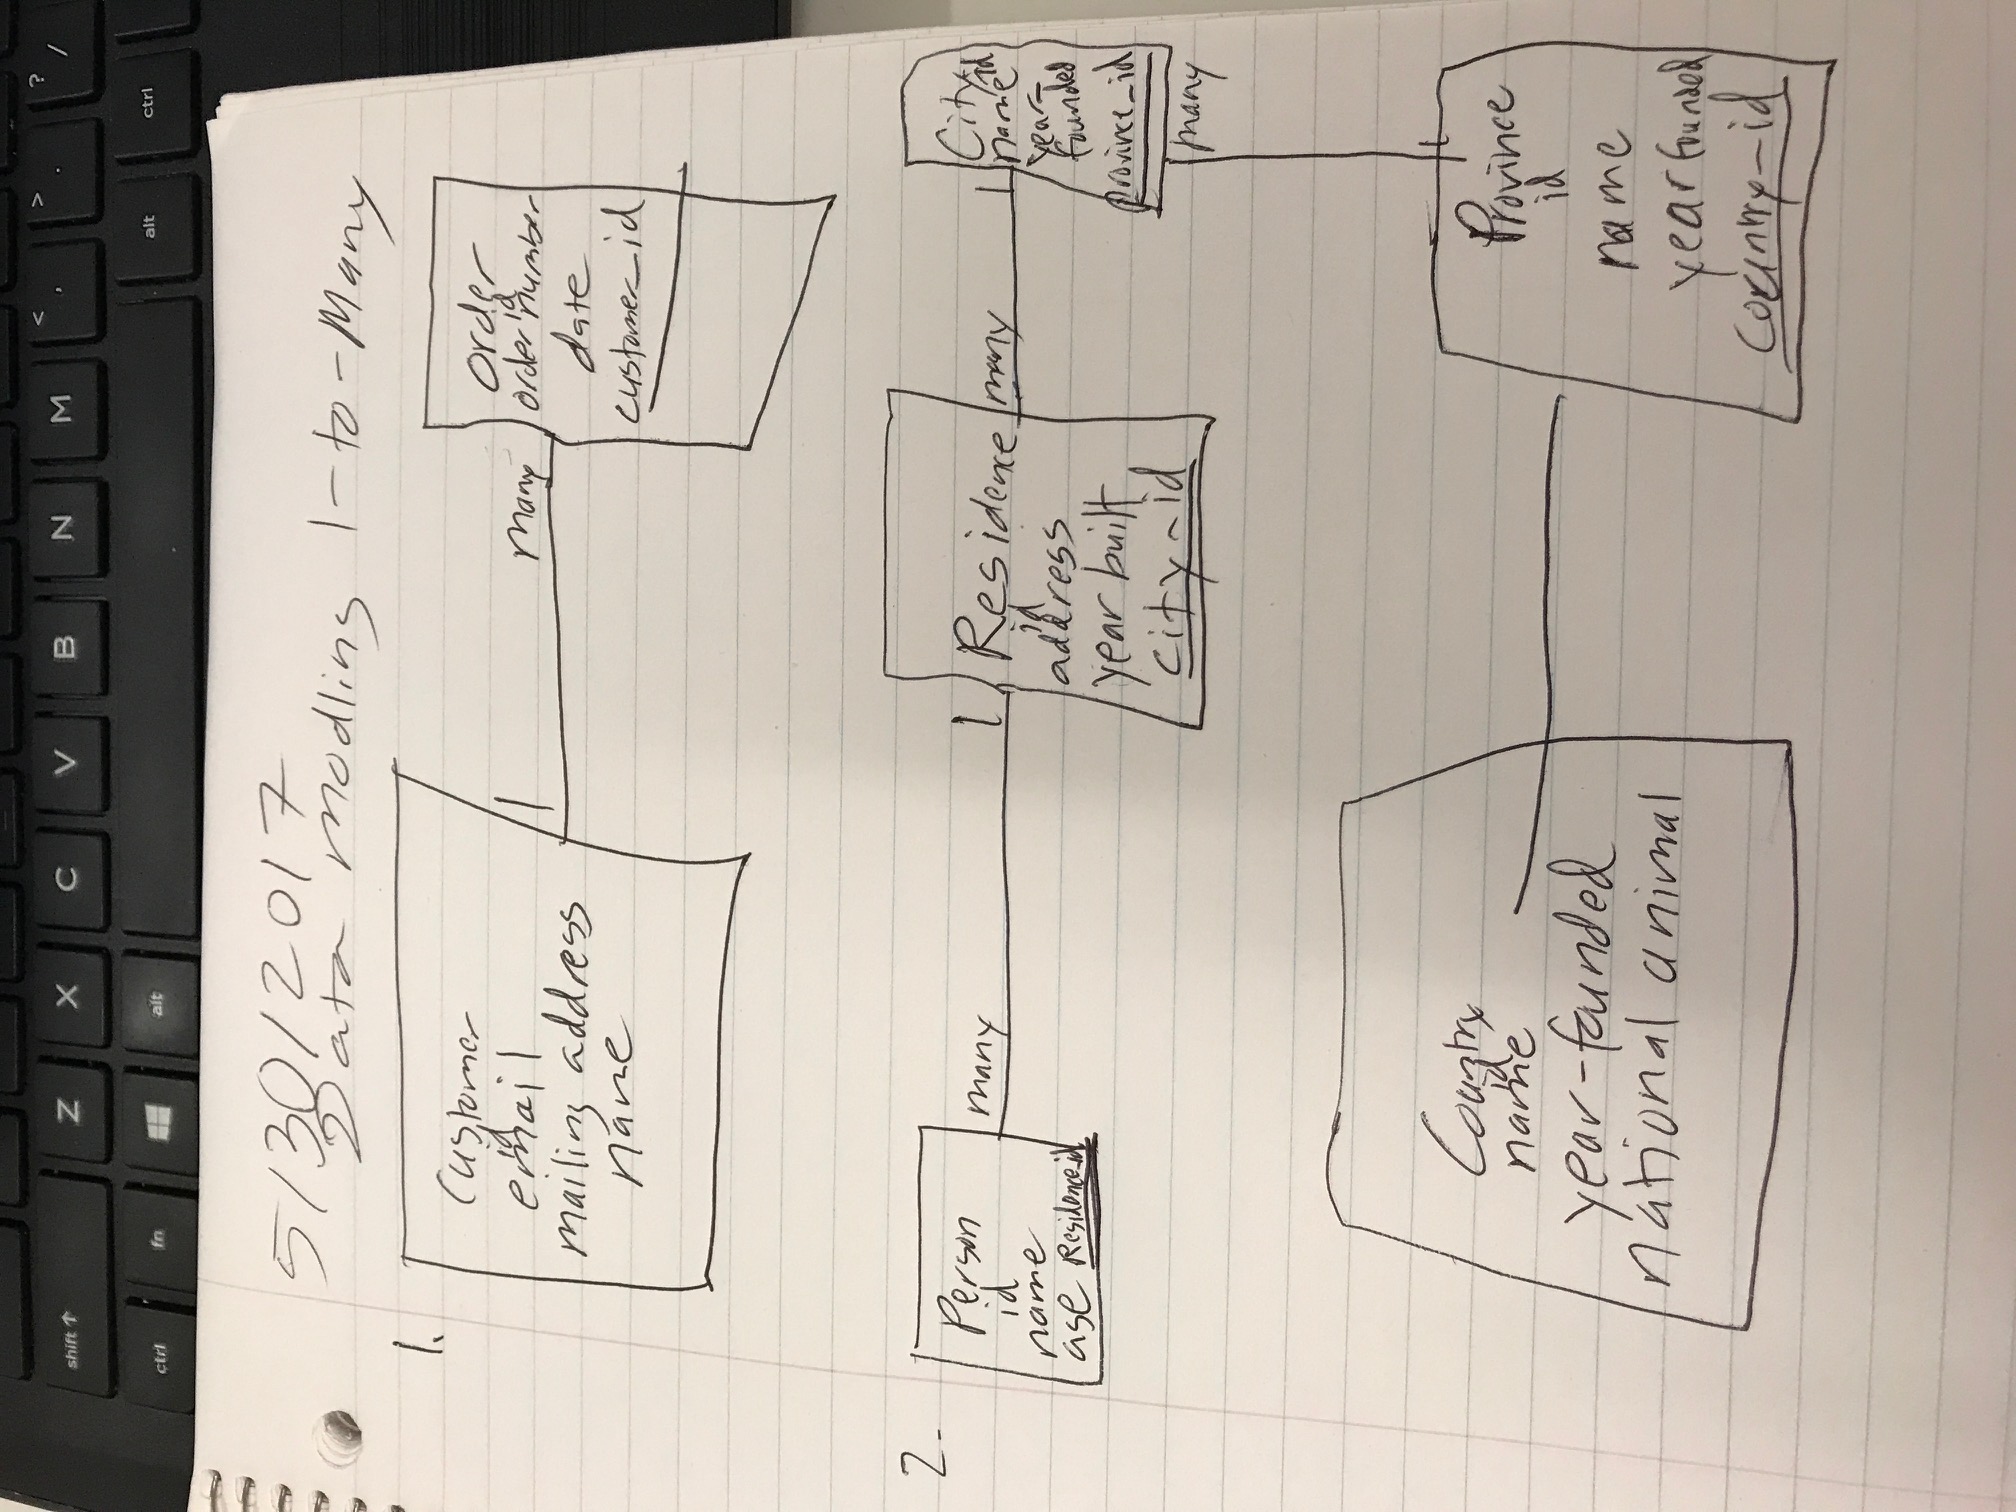 shift ↑
Z
X
C
V
B
N
M
< ,
> .
? /
ctrl
fn
alt
alt
ctrl
5/30/2017
Data Modling 1-to-Many
1.
Customer
id
email
mailing address
name
1
many
order
id
order number
date
customer_id
2.
Person
id
name
age Residence_id
many
1
Residence
id
address
year built
city-id
many
1
City
id
name
year-
founded
province_id
many
1
Country
id
name
year-founded
national animal
Province
id
name
year founded
country-id